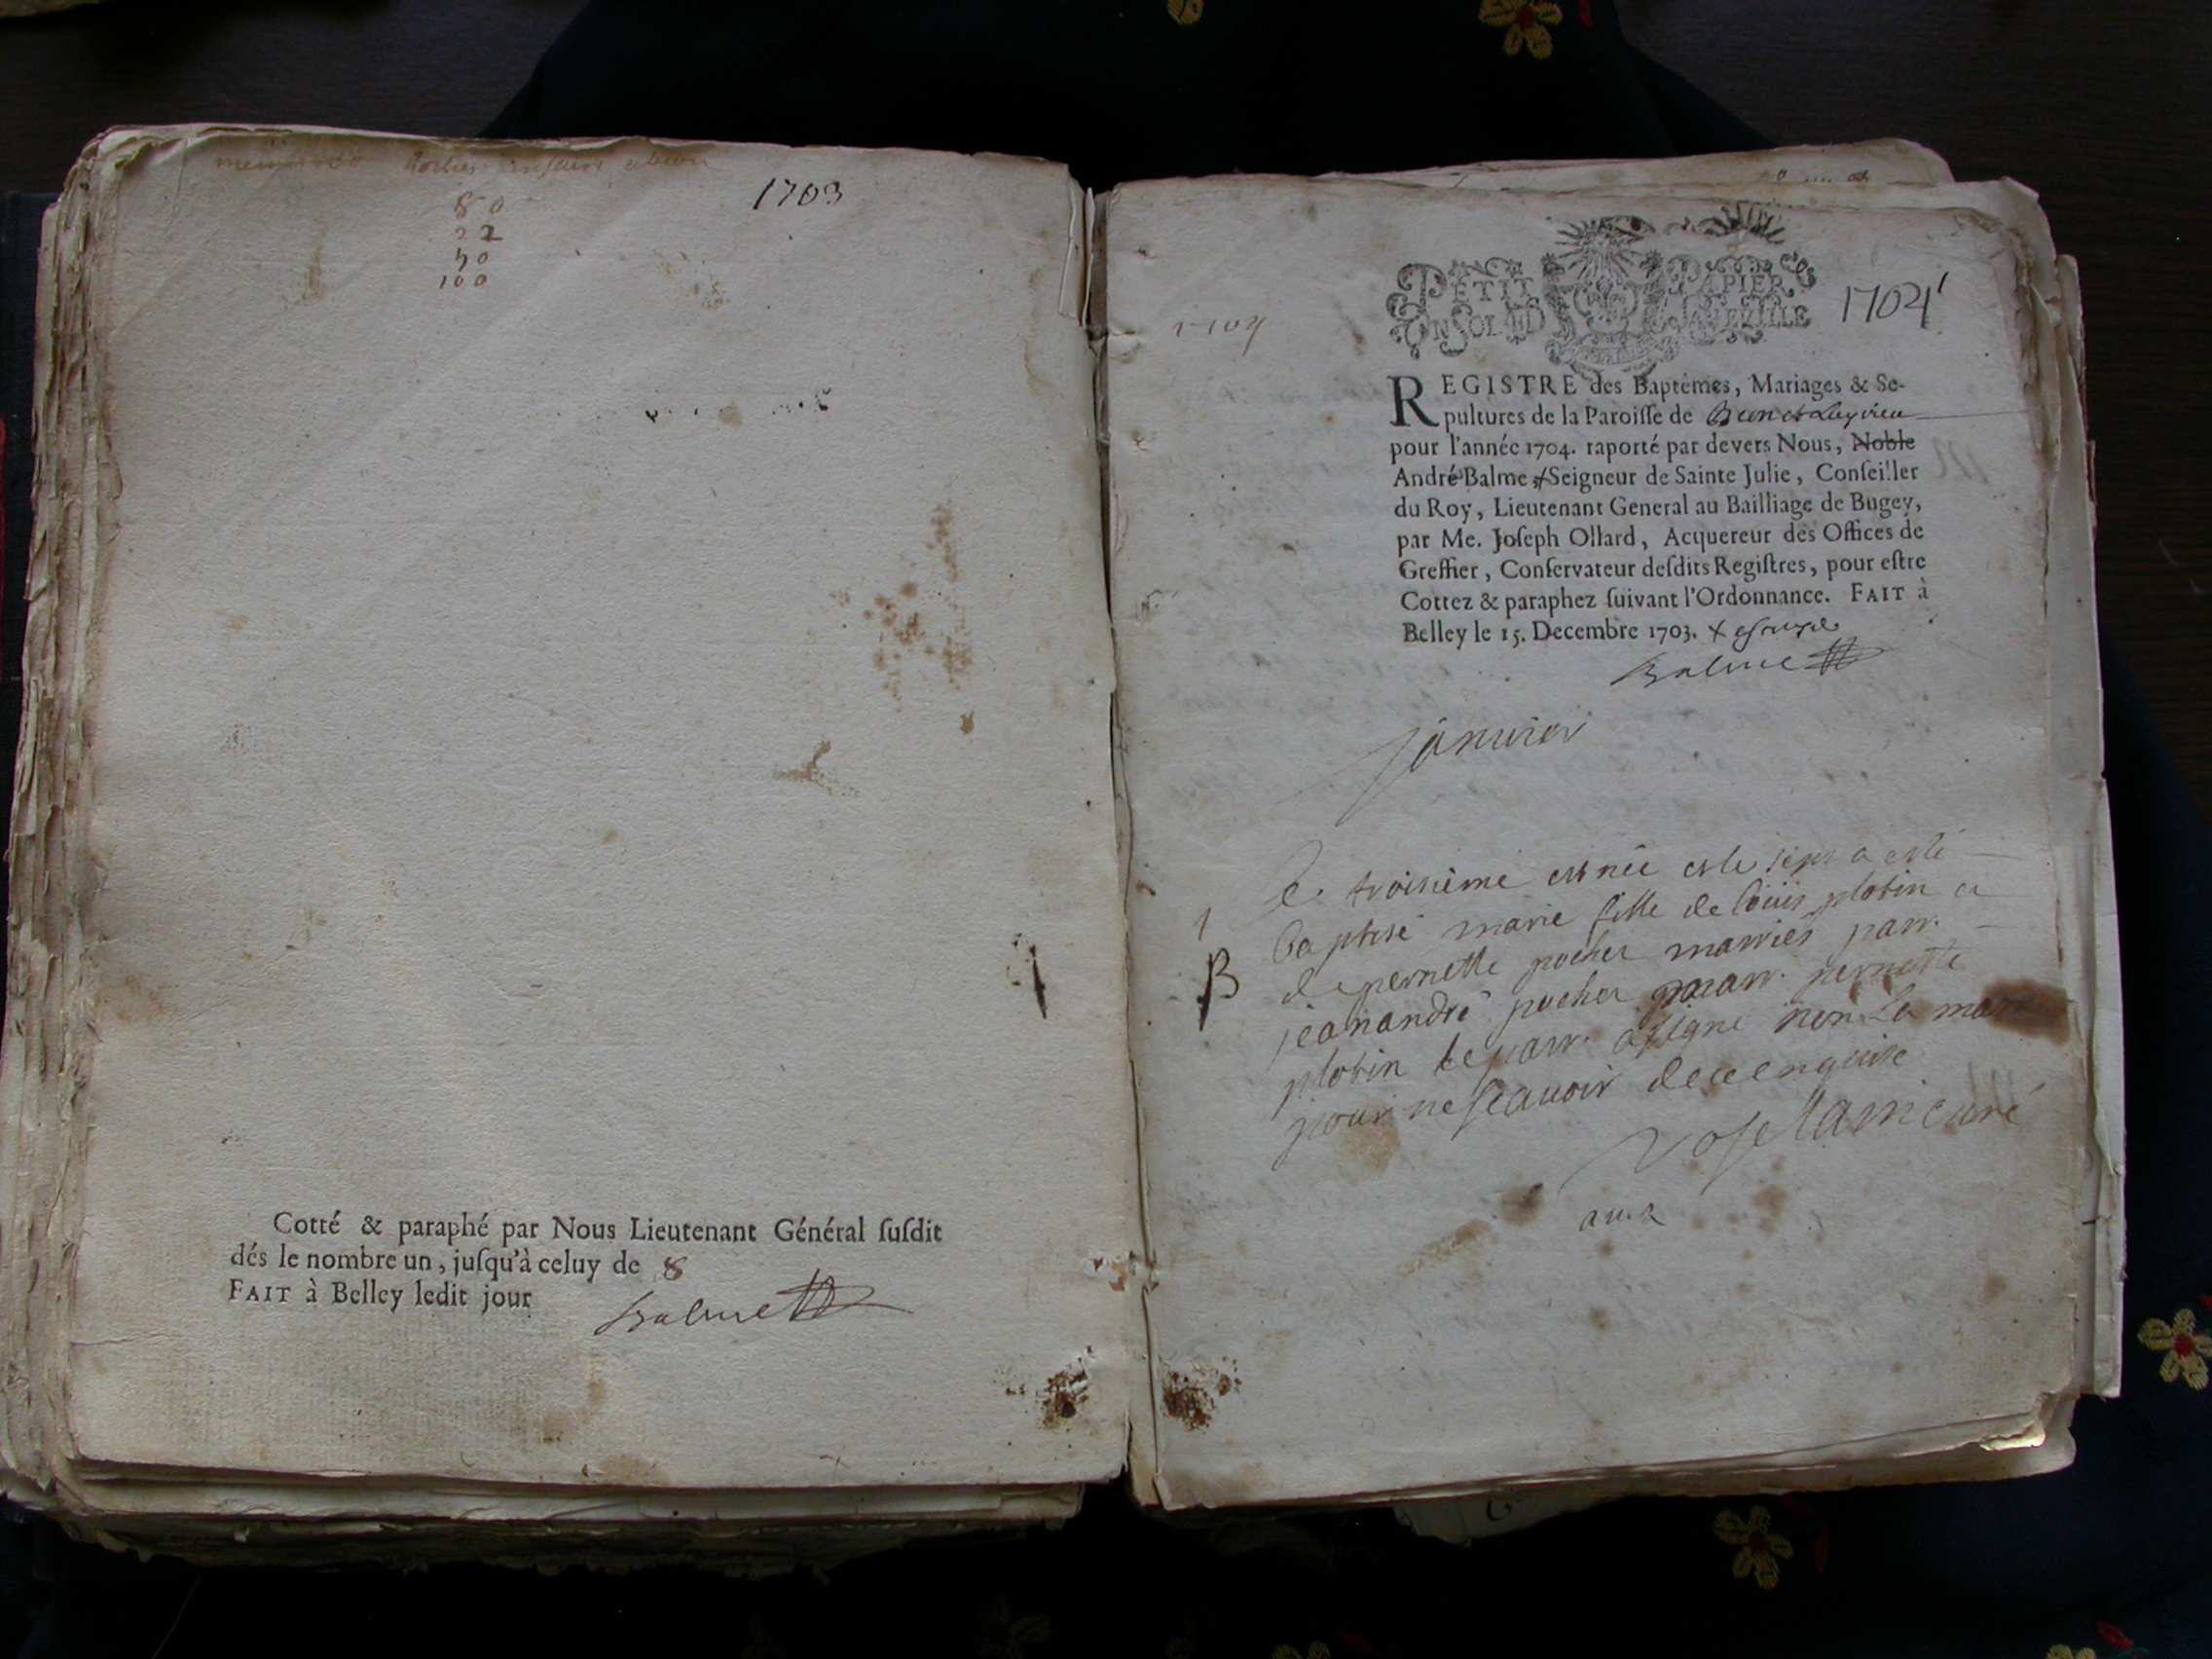 1703
80
22
50
100
Cotté & paraphé par Nous Lieutenant Général ſuſdit
dés le nombre un, juſqu'à celuy de 8
FAIT à Belley ledit jour
Balme
PETIT PAPIER
UN SOL IIII D LA FEUILLE
1704
REGISTRE des Baptêmes, Mariages & Se-
pultures de la Paroiſſe de
pour l'année 1704. raporté par devers Nous, Noble
André Balme Seigneur de Sainte Julie, Conſeiller
du Roy, Lieutenant General au Bailliage de Bugey,
par Me. Joſeph Ollard, Acquereur des Offices de
Greffier, Conſervateur deſdits Regiſtres, pour eſtre
Cottez & paraphez ſuivant l'Ordonnance. FAIT à
Belley le 15. Decembre 1703.
Balme
janvier
1
B
le troisieme est née et le sept a esté
baptisé marie fille de loüis plotin et
de pernette pochet marriés parr.
jeanandré pochet marr. pernette
plotin le parr. a signé non la marr
pour ne sçauoir de ce enquise
curé